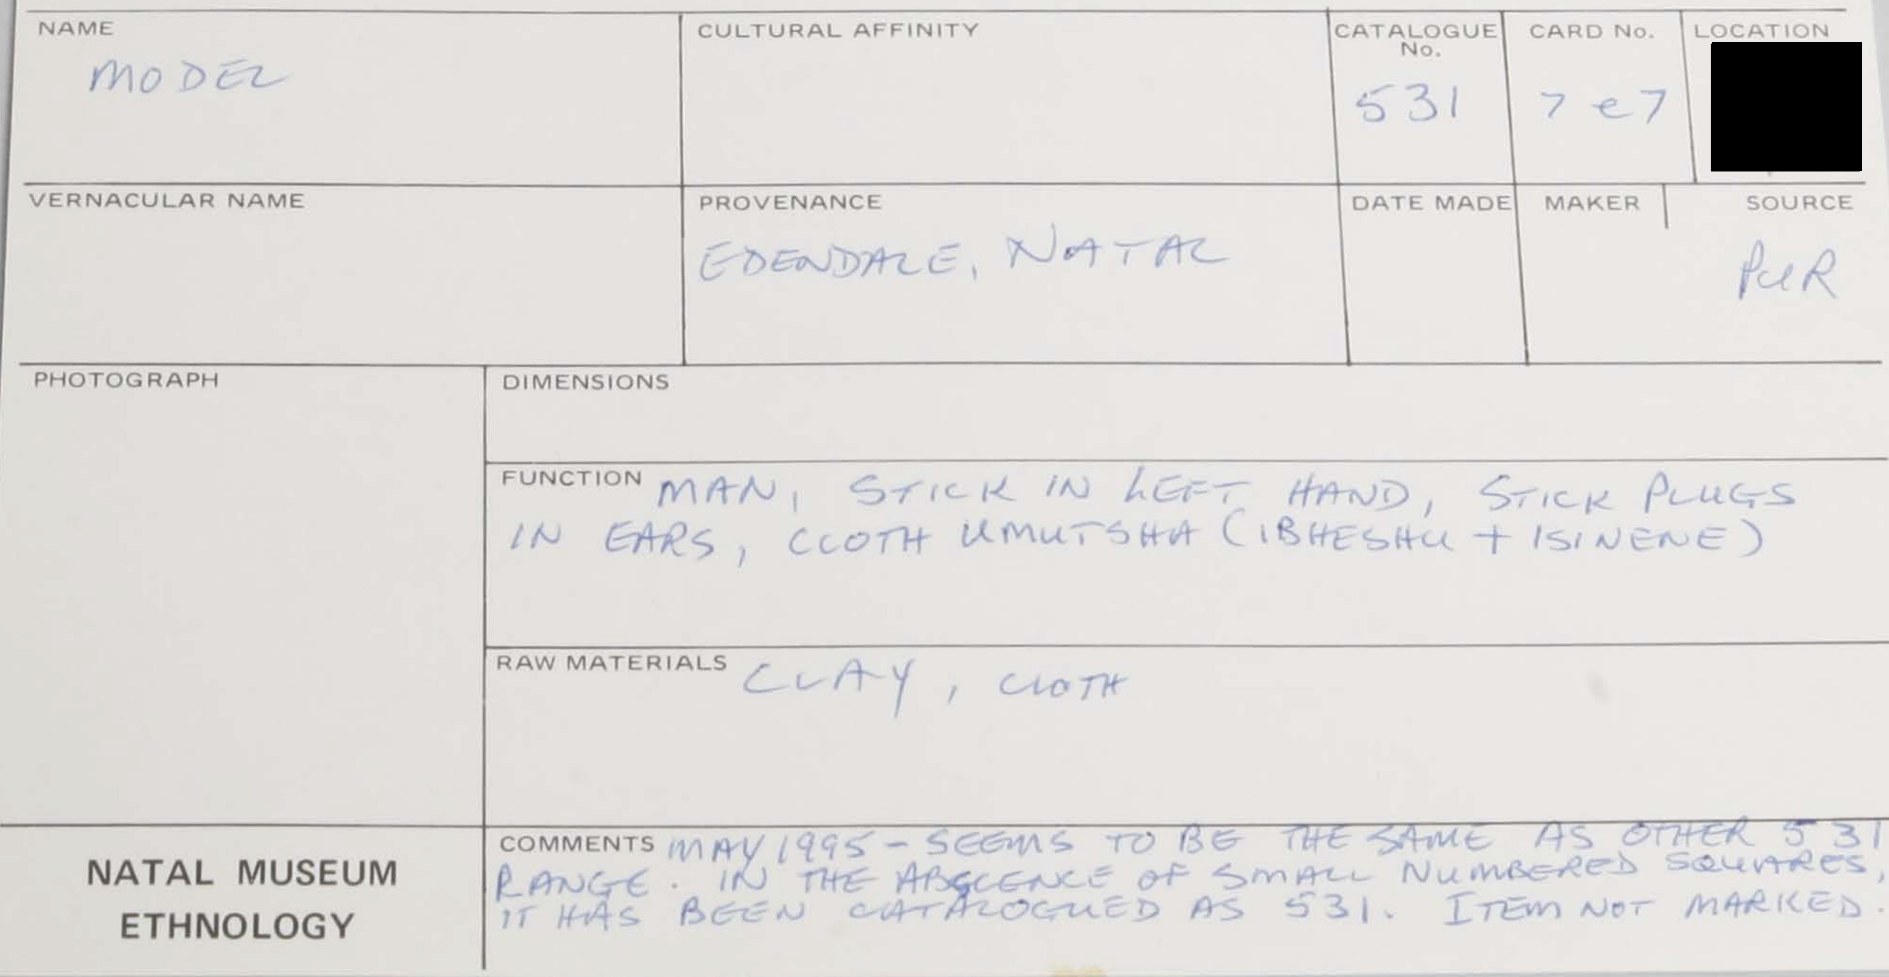 NAME
MODEL
CULTURAL AFFINITY
CATALOGUE No.
531
CARD No.
7 e7
LOCATION
VERNACULAR NAME
PROVENANCE
EDENDALE, NATAL
DATE MADE
MAKER
SOURCE
PUR
PHOTOGRAPH
DIMENSIONS
FUNCTION MAN, STICK IN LEFT HAND, STICK PLUGS
IN EARS, CLOTH UMUTSHA (IBHESHU + ISINENE)
RAW MATERIALS CLAY, CLOTH
COMMENTS MAY 1995 - SEEMS TO BE THE SAME AS OTHER 531
RANGE. IN THE ABSCENCE OF SMALL NUMBERED SQUARES,
IT HAS BEEN CATALOGUED AS 531. ITEM NOT MARKED.
NATAL MUSEUM
ETHNOLOGY